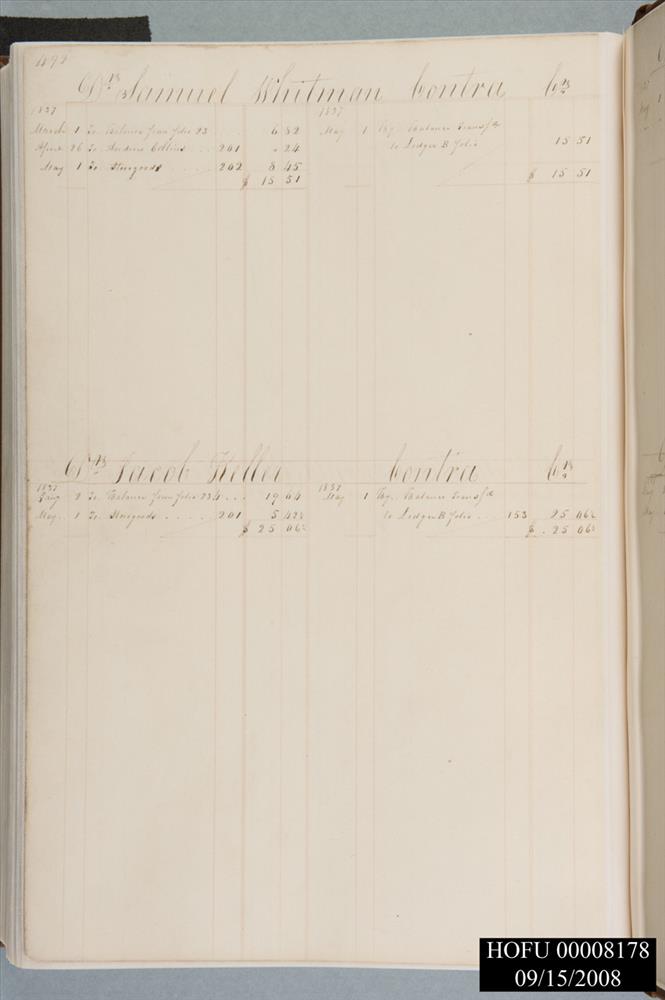 492
Dr Samuel Whitman Contra Cr
1837 1837
March 1 To Balance from folio 23 6 82 May 1 By Balance Transfd
April 26 To Andrew Collins 201 24 to Ledger B folio 15 51
May 1 To Storegoods 202 8 45
$ 15 51 $ 15 51
Dr Jacob Keller Contra Cr
1837 1837
2 To Balance from folio 234 19 64 May 1 By Balance Transfd
May 1 To Storegoods 201 5 42½ to Ledger B folio 153 25 06½
$ 25 06½ $ 25 06½
HOFU 00008178
09/15/2008